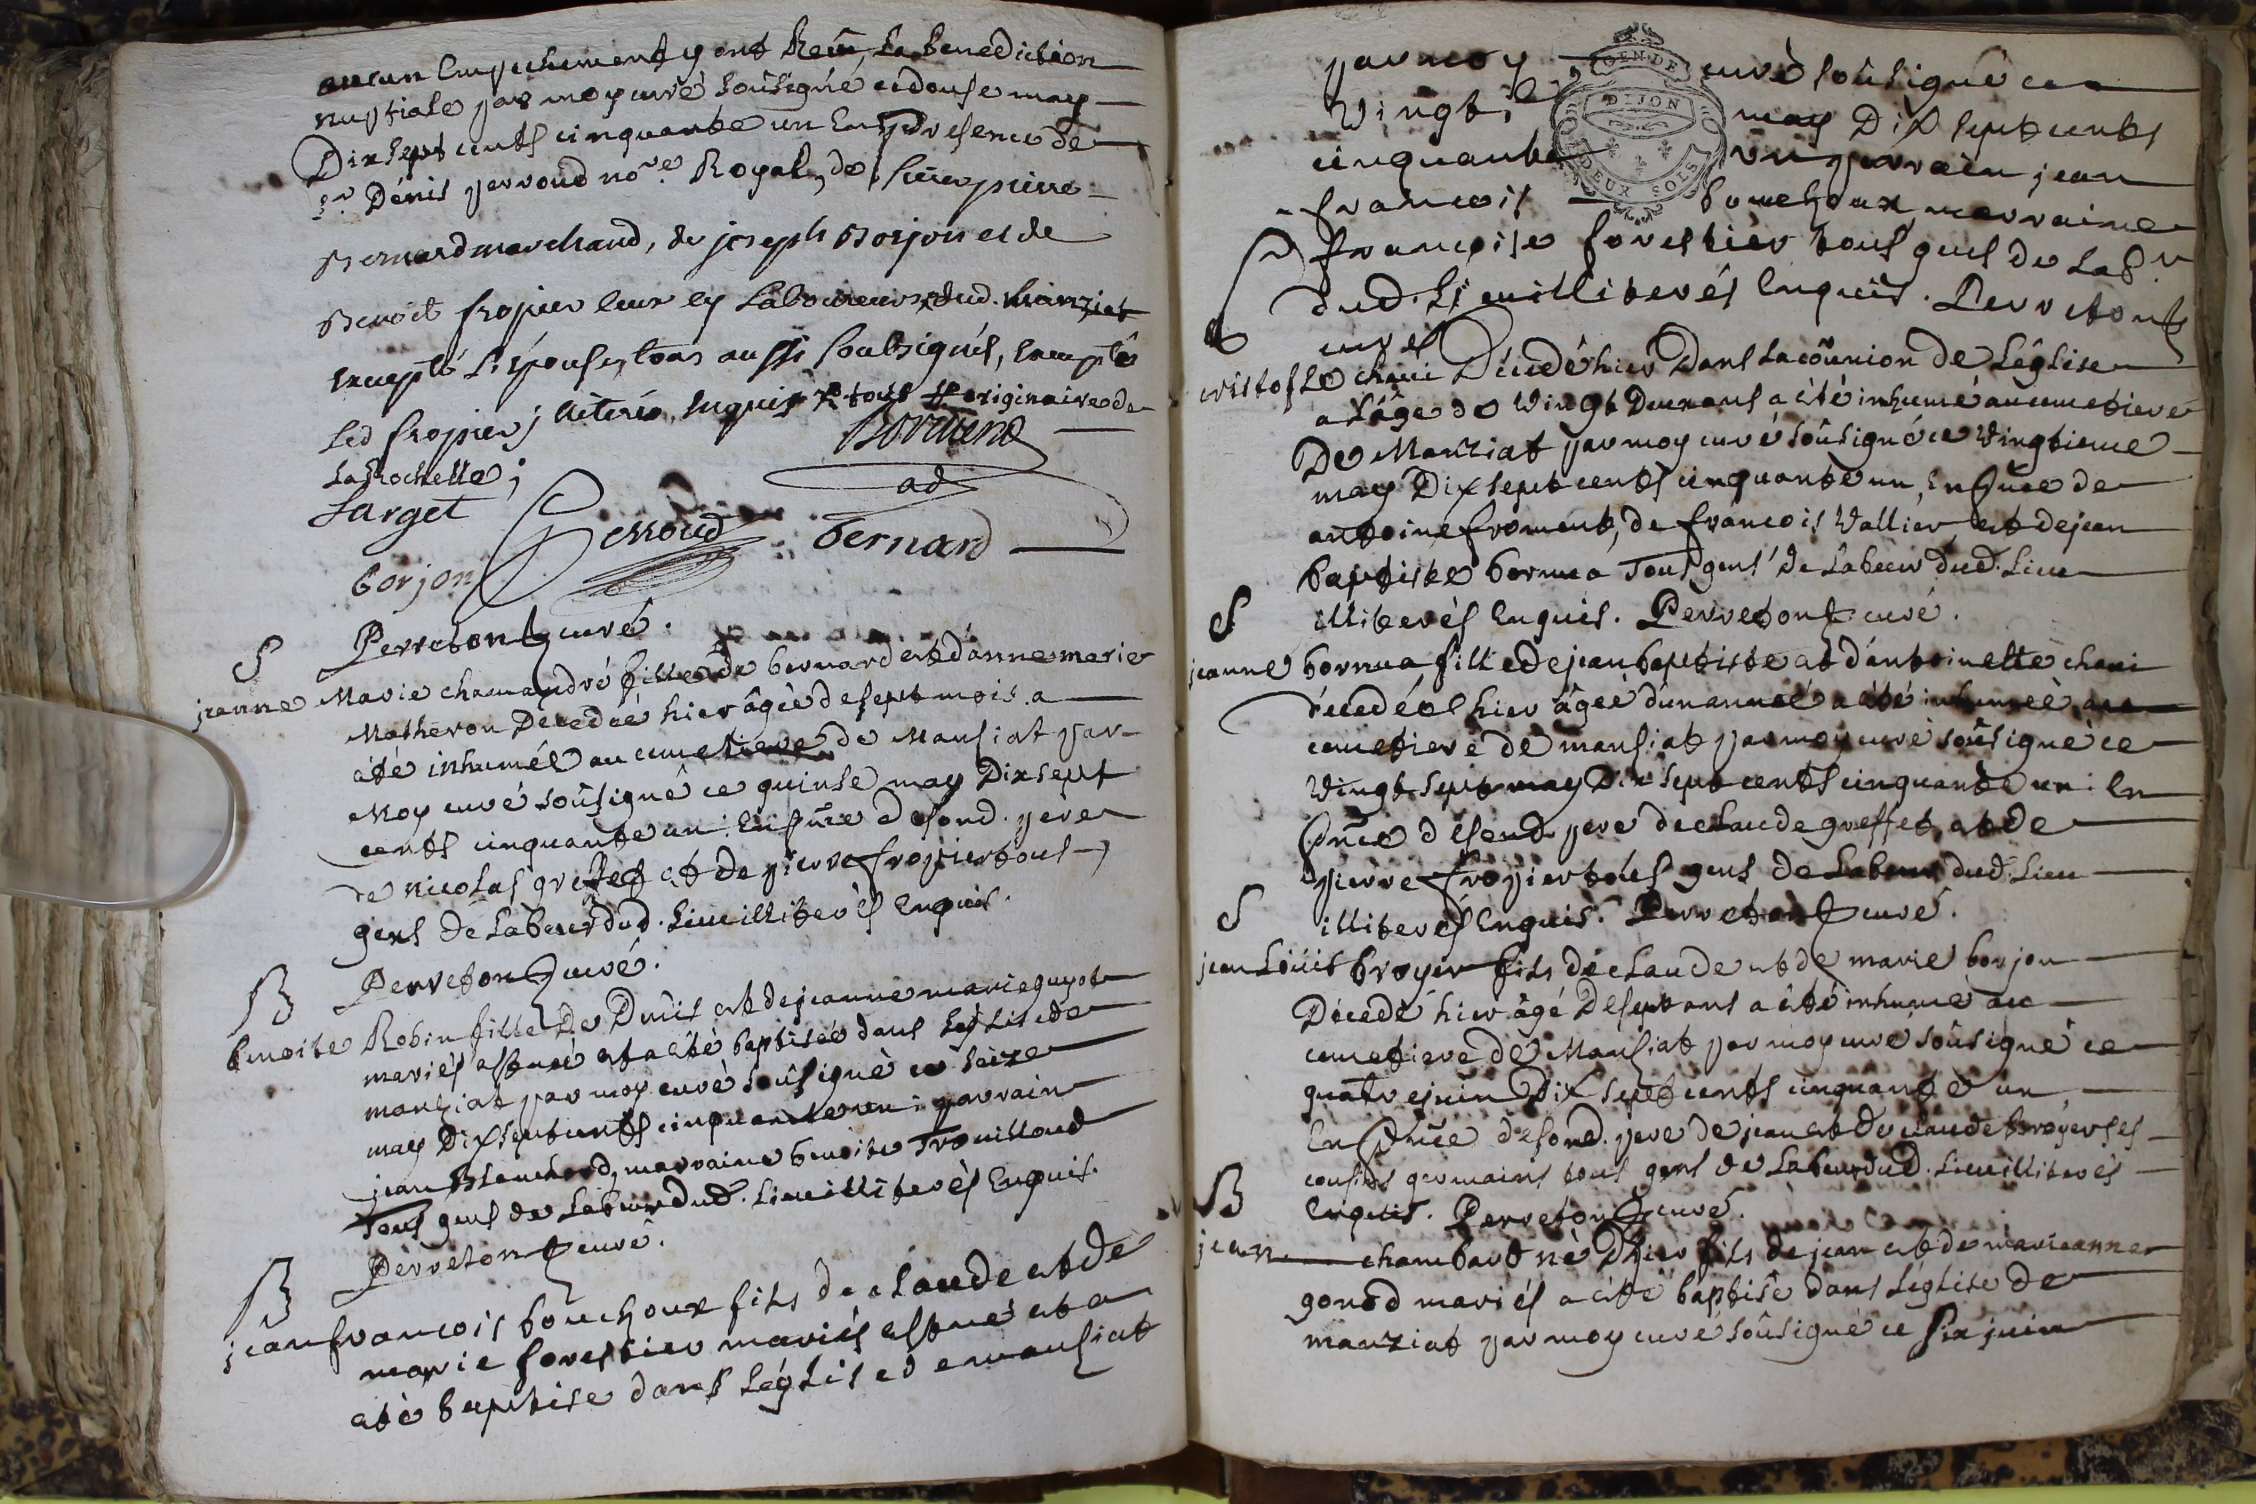 aucun Empechement, y ont Reçû, La benediction
nuptiale par moy curé soûsigné ce douse may
Dix sept cents cinquante un En presence de
Sr Dénis perroud nore Royal, de sieur pierre
Bernard marchand, de joseph Borjon et de
Benoit fropier Laboureurs, dud. Manziat
Excepté L'épouse, tous aussi soubsignés, Excepté
Led fropier, illiteré Enquis tous originaire de
La Rochelle;
Larget
ad
Perroud bernard
borjon
Perreton curé.
S
jeanne Marie chamandré fille de bernard et d'anne marie
Matheron Décedée hier âgée de sept mois a
été inhumée au cimetiere de Mansiat par
Moy curé soûsigné ce quinse may Dix sept
cents cinquante un. En pnce de sond. père
de nicolas greffet et de pierre fropier tous
gens de Labeur dud. Lieu illiterés Enquis.
Perreton curé.
B
benoite Robin fille De Denis et de jeanne marie guyot
mariés est née et a été baptisée dans Léglise de
manziat par moy curé soûsigné ce saize
may Dix sept cents cinquante un. parrain
jean Blanchard, marraine benoite Trouilloud
Tous gens de Labeur dud. Lieu illiterés Enquis.
Perreton curé.
B
jean francois bouchoux fils de claude et de
marie forestier mariés est né et a
été baptise dans Léglise de mansiat
par moy curé soûsigné ce
GEN. DE
DIJON
DEUX SOLS
vingt may Dix sept cents
cinquante un parrain jean
francois bouchoux marraine
francoise forestier tous gens de Labr
dud. Lieu illiterés Enquis. Perreton
curé
S
cristofle chavi Décedé hier Dans La coûnion de Léglise
a L'âge de vingt Deux ans a été inhumé au cimetiere
De Manziat par moy curé soûsigné ce vingtieme
may Dix sept cents cinquante un, En pnce de
antoine froment, de francois Vallier et de jean
baptiste bornua Tous gens de Labeur dud. Lieu
illiterés Enquis. Perreton curé.
S
jeanne bornua fille de jean baptiste et d'antoinette chavi
décedée hier âgée d'un année a été inhumée au
cimetiere de mansiat par moy curé soûsigné ce
vingt sept may Dix sept cents cinquante un. En
pnce de send. pere de claude greffet et de
pierre fropier tous gens de Labeur dud. Lieu
illiterés Enquis. Perreton curé.
S
jean Loüis broyer fils de claude et de marie borjon
Décedé hier âgé De sept ans a été inhumé au
cimetiere de Mansiat par moy curé soûsigné ce
quatre juin Dix sept cents cinquante un,
En pnce de sond. pere de jean et de claude broyer ses
cousins germains tous gens de Labeur dud. Lieu illiterés
Enquis. Perreton curé.
B
jean chambard né D'hier fils de jean et de marie anne
gonod mariés a été baptisé dans Léglise de
manziat par moy curé soûsigné ce six juin